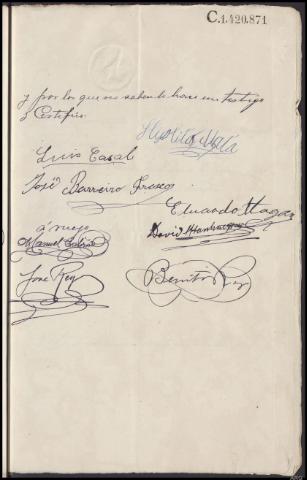 C.1.420.871
y por los que no saben lo hace un testigo
y Certifico.
Hipólito Matá
Luis Casal
José Barreiro Fresco
Eduardo
á ruego
David
Manuel
José Rey
Benito Rey